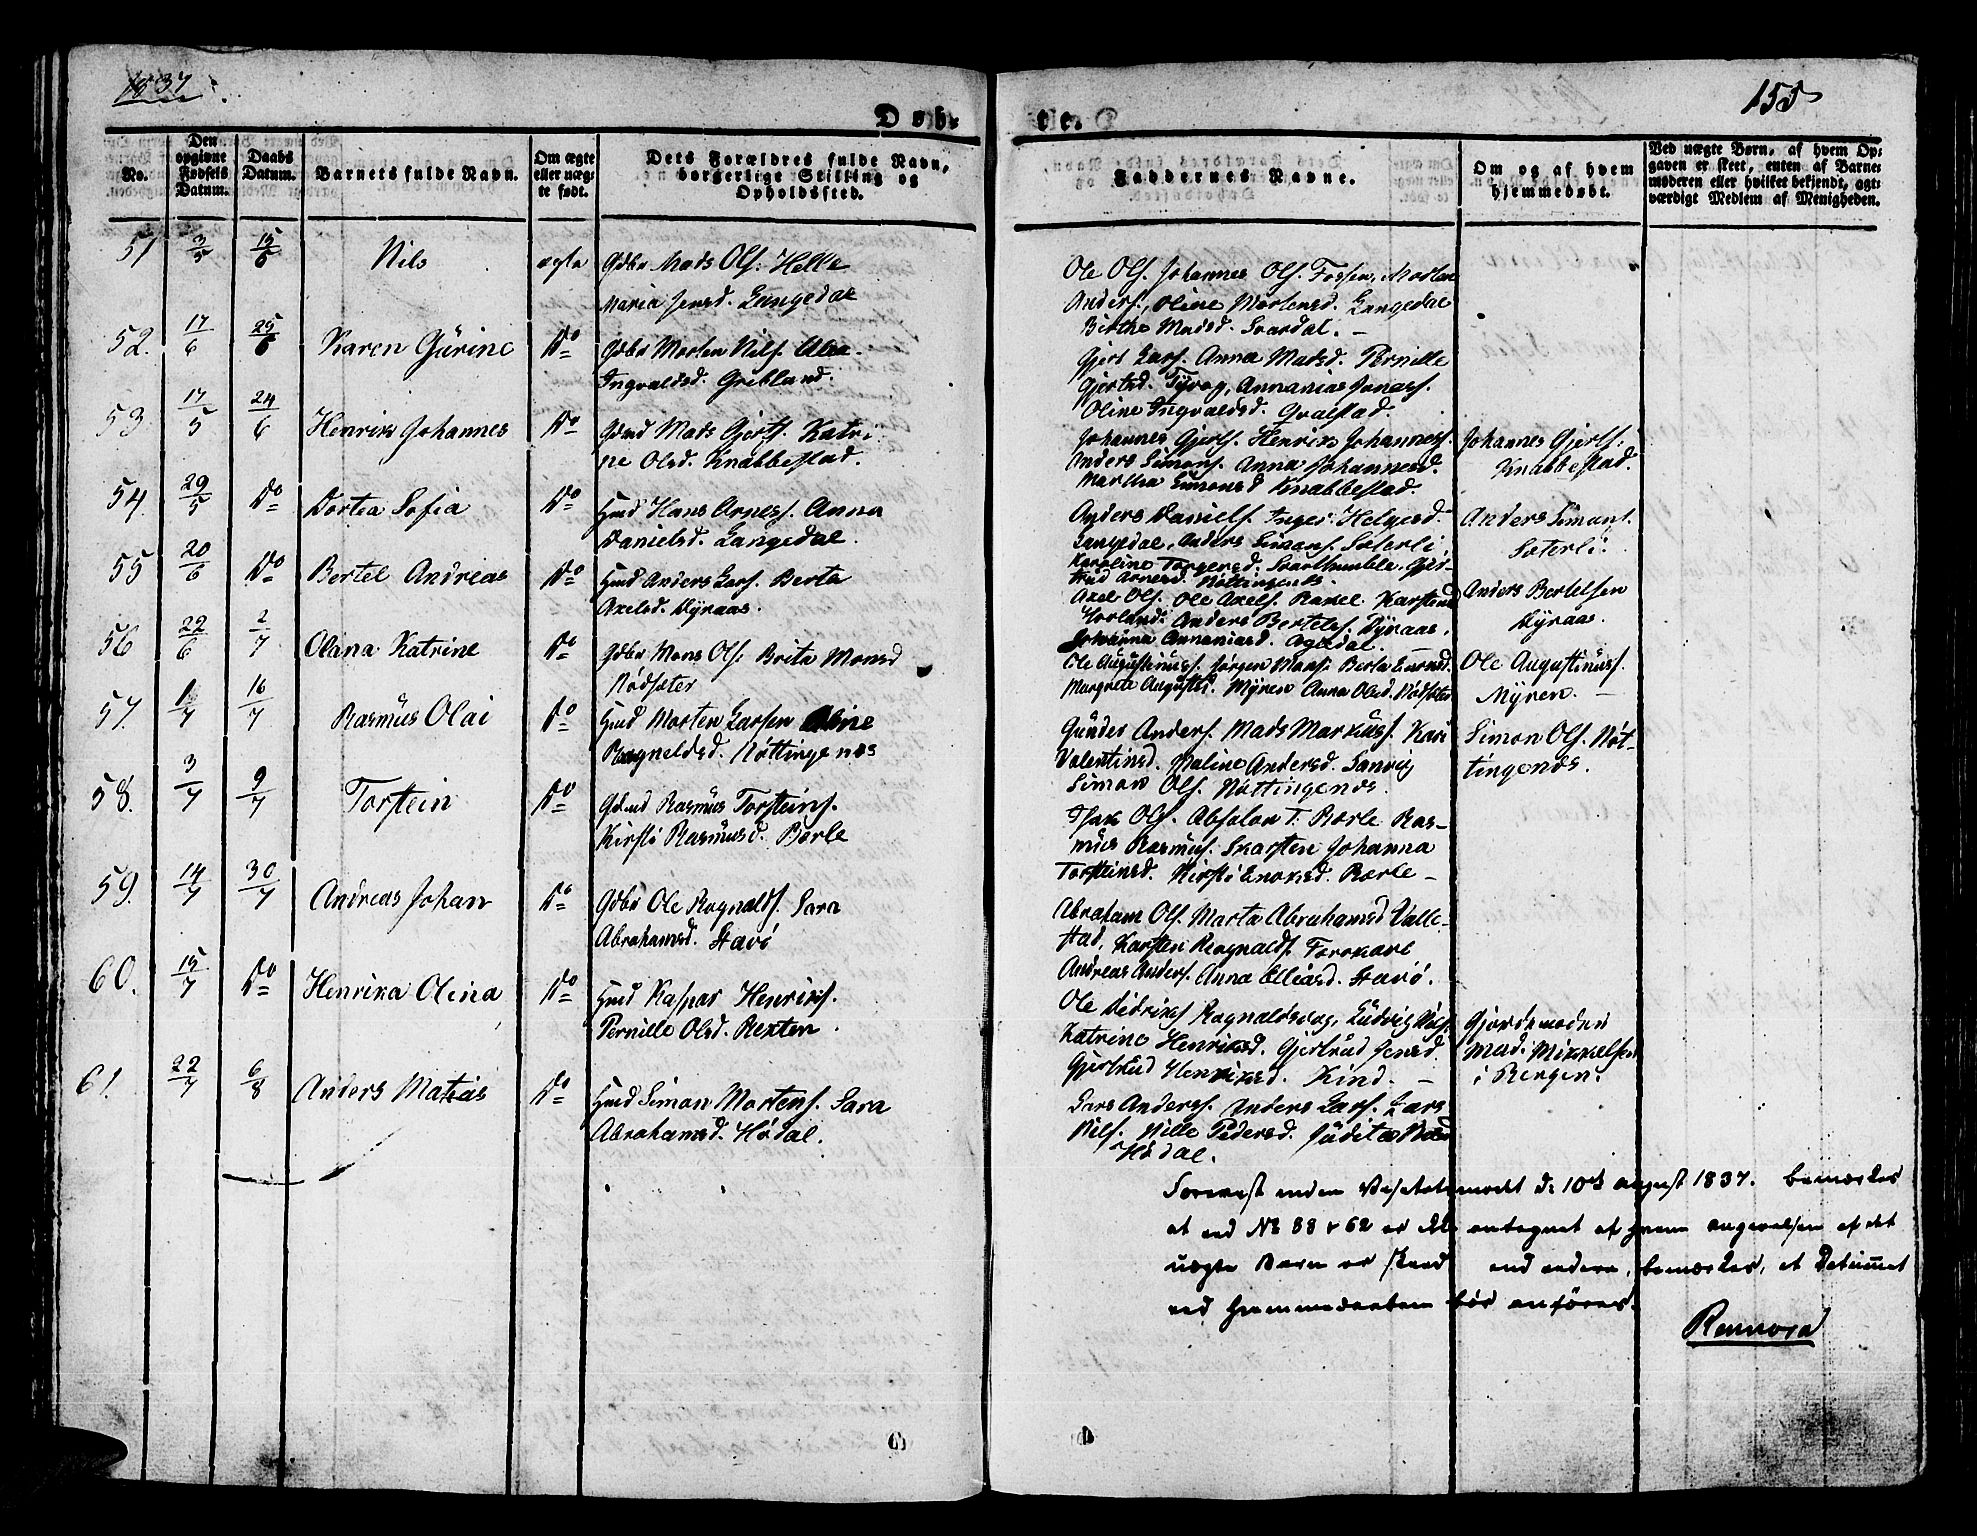 1837.
155
Døb-
te.
No.
Den opgivne Fødsels Datum.
Daabs Datum.
Barnets fulde Navn.
Om ægte eller uægte født.
Dets Forældres fulde Navn, borgerlige Stilling og Opholdssted.
Faddernes Navne.
Om og af hvem hjemmedøbt.
Ved uægte Børn, af hvem Op-
gaven er skeet, enten af Barne-
moderen eller hvilket bekjendt, agt-
værdigt Medlem af Menigheden.
51 3/5 15/6 Nils ægte Gdbr Mads Ols: Helle
Maria Jensd. Langedal
Ole Ols. Johannes Ols. Fossen, Morten
Anders., Oline Mortensd. Langedal
Birthe Madsd. Svardal. –
52. 17/6 25/6 Karen Gurine Do Gdbr Morten Nils.
Ingvaldsd. Gribland.
Gjert Lars. Anna Madsd. Pernille
Gjertsd. Tyvog, Annanias Jonass.
Oline Ingvaldsd. Qvalstad.
53. 17/5 24/6 Henrik Johannes Do Gdmd Mads Gjerts. Katri-
ne Olsd. Knabbestad.
Johannes Gjerts. Henrik Johanness.
Anders Simons. Anna Johannesd.
Martha Simonsd Knabbestad.
Johannes Gjerts.
Knabbestad.
54. 29/5 Do Dortea Sofia Do Hmd Hans Arness. Anna
Danielsd. Langedal.
Anders Daniels. Inger Helgesd.
Langedal, Anders Simons. Sæterli,
Karoline Torgersd. Svarthumble, Gjer-
trud Arnesd. Nøttingenes.
Anders Simons.
Sæterli.
55 20/6 Do Bertel Andreas Do Hmd Anders Lars. Berta
Axelsd. Dyraas.
Axel Ols. Ole Axels. Rakel Karstend
Hovland. Anders Bertels. Dyraas.
Johanna Annaniasd. Agledal. –
Anders Bertelsen
Dyraas.
56 22/6 2/7 Olana Katrine Do Gdbr Mons Ols: Brita Monsd
Rødseter
Ole Augustinuss. Jørgen Mons. Berta Larsd.
Margrete Augustsd. Myren Anna Olsd. Rødseter
Ole Augustinuss.
Myren. –
57. 1/7 16/7 Rasmus Olai Do Hmd Morten Larsen Oline
Ragnaldsd. Nøttingenæs
Gunder Anders. Mads Markuss. Kari
Valentinsd. Maline Andersd. Sanvig
Simon Ols. Nøttingenæs.
Simon Ols. Nøt-
tingenæs.
58. 3/7 9/7 Torstein Do Gdmd Rasmus Torsteins.
Kirsti Rasmusd. Børle
Isak Ols. Absalon T. Børle Ras-
mus Rasmus. Skarsten Johanna
Torsteinsd. Kirsti Enoksd. Børle –
59. 14/7 30/7 Andreas Johan Do Gdbr Ole Ragnalds. Sara
Abrahamsd. Stavø
Abraham Ols. Marta Abrahamsd Valle-
stad, Karsten Ragnalds.
Andreas Anders. Anna Elliasd. Stavø.
60. 15/7 Do Henrika Olina Do Hmd Kaspar Henriks.
Pernille Olsd. Rexten.
Ole Didriks Ragnaldsvag, Ludvig Nils.
Katrine Henriksd. Gjertrud Jensd.
Gjertrud Henriksd. Kind. –
Gjordemoder
Mad: Mikkelsen
i Bergen.
61. 22/7 6/8 Anders Matias Do Hmd Simon Mortens. Sara
Abrahamsd. Hødal.
Lars Anderss. Anders Lars. Lars
Nils. Nille Pedersd. Judita
Hødal.
Forevist under Visitatsmødet d: 10de August 1837. bemærkes
at ved No 38 & 62 er ikke antegnet af hvem angivelsen af det
uægte Barn er skeed end videre, bemærkes, at Datumet
ved Hjemmedaaben bør anføres.
Rennord